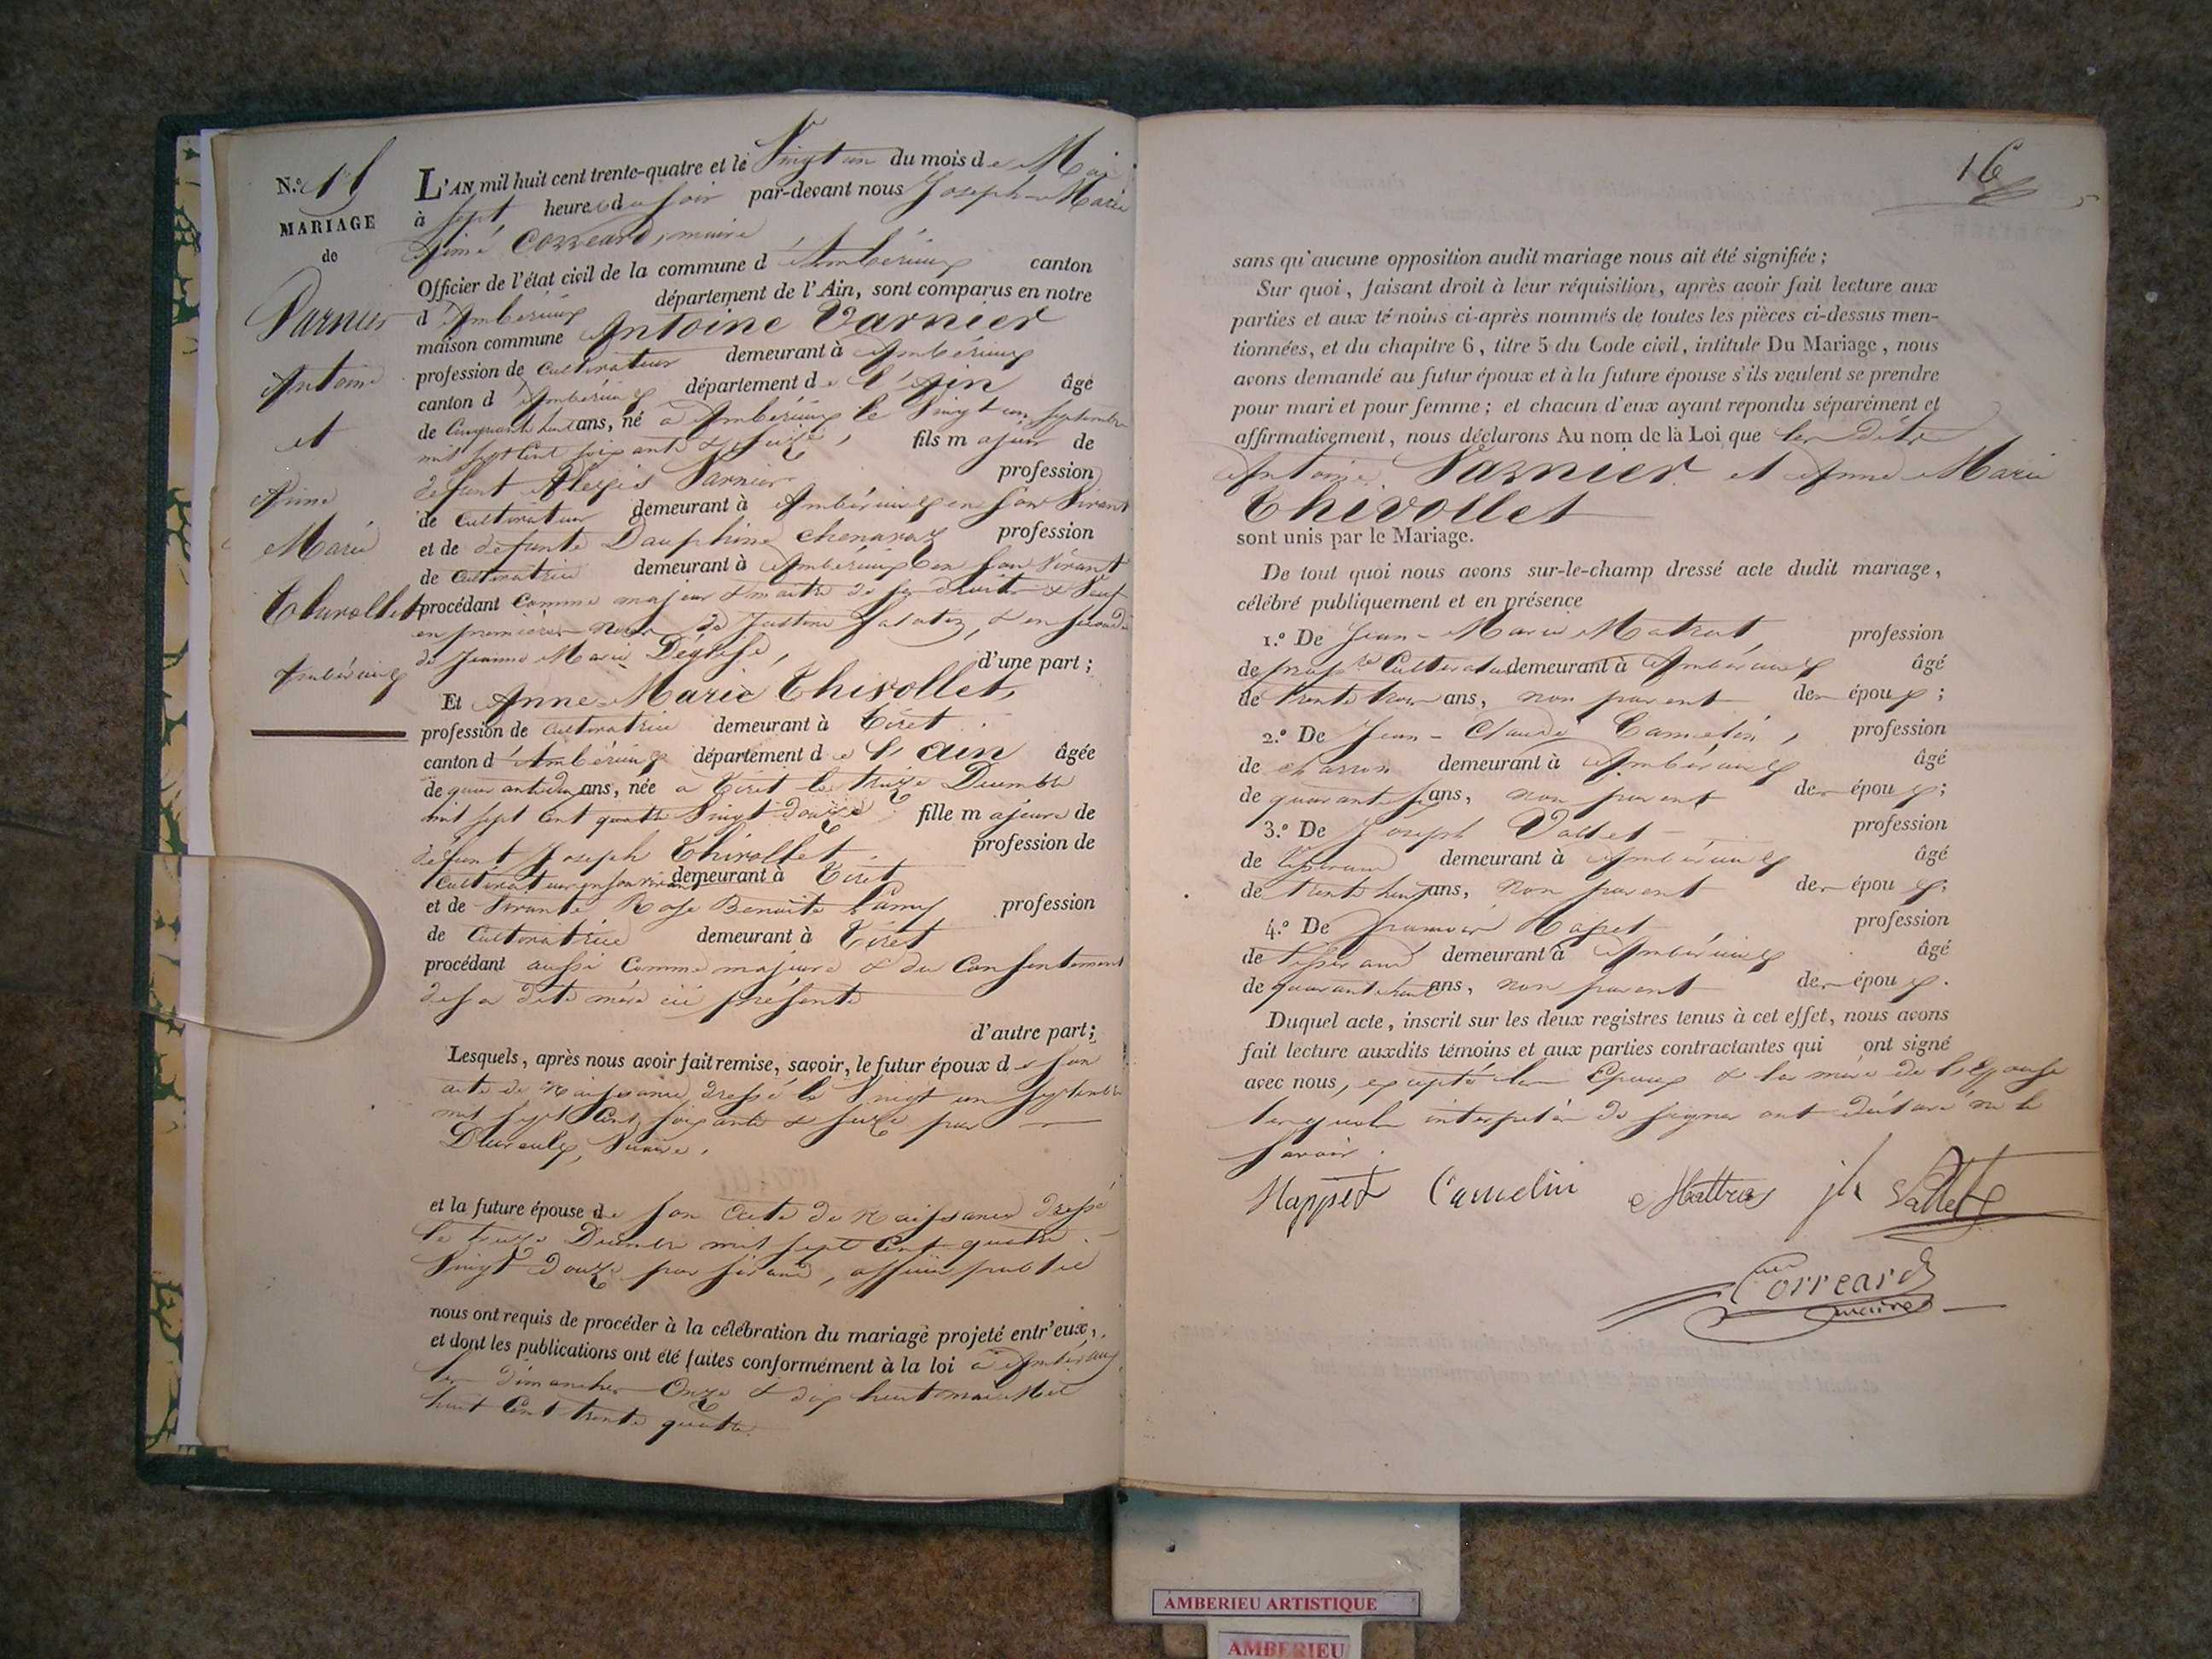 N.º 15
MARIAGE
de
Varnier
Antoine
et
Anne
Marie
Thivollet
Ambérieux
L'AN mil huit cent trente-quatre et le Vingt un du mois de Mai
à Sept heures du soir par-devant nous Joseph-Marie
Aimé Correard, maire
Officier de l'état civil de la commune d'Ambérieux canton
d'Ambérieux département de l'Ain, sont comparus en notre
maison commune Antoine Varnier
profession de Cultivateur demeurant à Ambérieux
canton d'Ambérieux département de l'Ain âgé
de Cinquante huit ans, né à Ambérieux le Vingt un Septembre
mil sept cent soixante & seize, fils majeur de
défunt Alexis Varnier profession
de Cultivateur demeurant à Ambérieux en son Vivant
et de défunte Dauphine Chenavaz profession
de Cultivatrice demeurant à Ambérieux en son Vivant
procédant Comme majeur & maître de ses droits & Veuf
en premières Noces de Justine & en seconde
de Jeanne Marie d'une part ;
Et Anne-Marie Thivollet,
profession de Cultivatrice demeurant à Tiret
canton d'Ambérieux département de l'ain âgée
de quarante un ans, née à Tiret le treize Décembre
mil sept Cent quatre Vingt douze fille majeure de
défunt Joseph Thivollet profession de
Cultivateur en son vivant demeurant à Tiret
et de Vivante Rose Benoite Lamy profession
de Cultivatrice demeurant à Tiret
procédant aussi Comme majeure & du Consentement
de sa dite mère ici présente
d'autre part;
Lesquels, après nous avoir fait remise, savoir, le futur époux de son
acte de Naissance, dressé le Vingt un Septembre
mil sept Cent soixante & seize par
Vicaire.
et la future épouse de son acte de Naissance dressé
le treize Décembre mil sept Cent quatre
Vingt douze par officier public
nous ont requis de procéder à la célébration du mariage projeté entr'eux,
et dont les publications ont été faites conformément à la loi à Ambérieux
les dimanches Onze & dix huit mai Mil
huit Cent trente quatre.
16
sans qu'aucune opposition audit mariage nous ait été signifiée ;
Sur quoi, faisant droit à leur réquisition, après avoir fait lecture aux
parties et aux témoins ci-après nommés de toutes les pièces ci-dessus men-
tionnées, et du chapitre 6, titre 5 du Code civil, intitulé Du Mariage, nous
avons demandé au futur époux et à la future épouse s'ils veulent se prendre
pour mari et pour femme ; et chacun d'eux ayant repondu séparément et
affirmativement, nous déclarons Au nom de la Loi que les dits
Antoine Varnier et Anne Marie
Thivollet
sont unis par le Mariage.
De tout quoi nous avons sur-le-champ dressé acte dudit mariage,
célébré publiquement et en présence
1.º De Jean-Marie Matrat, profession
de Cultivateur demeurant à Ambérieux âgé
de trente trois ans, non parent des époux ;
2.º De Jean-Claude Camelin, profession
de charron demeurant à Ambérieux âgé
de quarante ans, non parent des époux ;
3.º De Joseph Vallet profession
de tisserand demeurant à Ambérieux âgé
de trente huit ans, non parent des époux ;
4.º De François Rapet profession
de tisserand demeurant à Ambérieux âgé
de quarante ans, non parent des époux.
Duquel acte, inscrit sur les deux registres tenus à cet effet, nous avons
fait lecture auxdits témoins et aux parties contractantes qui ont signé
avec nous, excepté les Epoux & la mère de l'Epouse
lesquels interpelés de signer ont déclaré ne le
savoir.
Rappet Camelin Jh Vallet
Correard
maire
AMBERIEU ARTISTIQUE
AMBERIEU